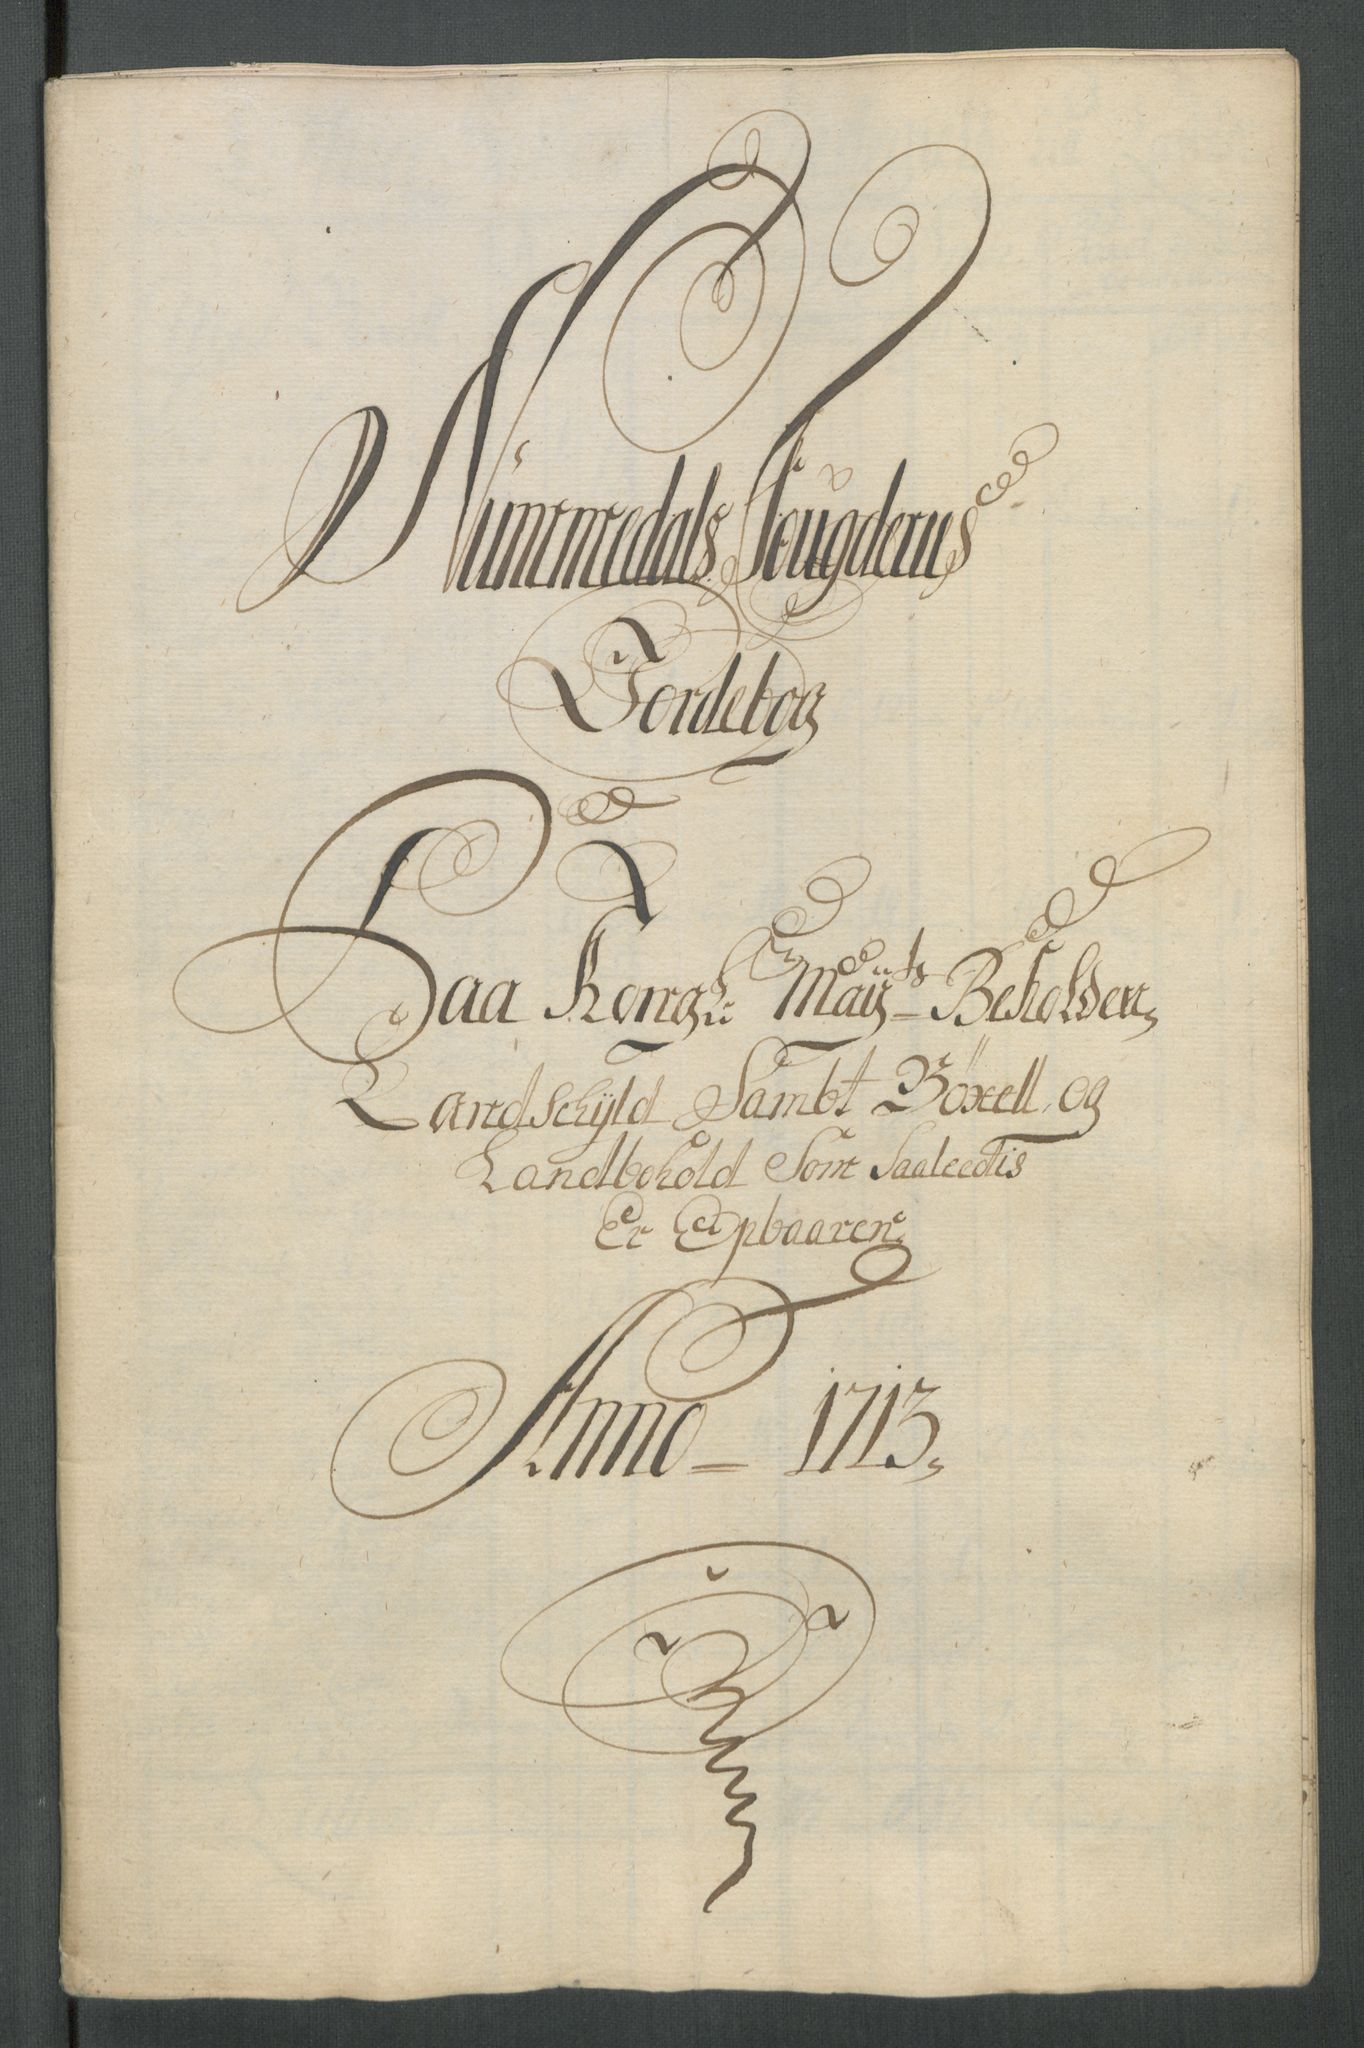 Nummedals Fougderies
Jordebog
Paa Kongl: Mayts Beholden
Landschyld Sambt Böxell og
Landbohold Som Saaleedis
Er Opbaaren
Anno 1713